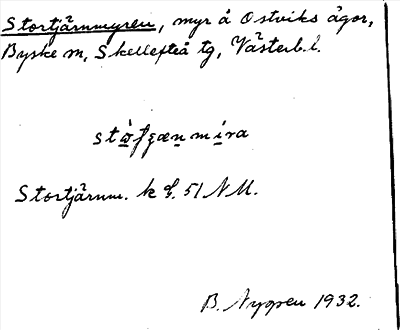 Stortjärnmyren, myr å Ostviks ägor,
Byske sn, Skellefteå tg, Västerb. l.
Stortjärnm. k bl. 51 NM.
B. Nyppen 1932.